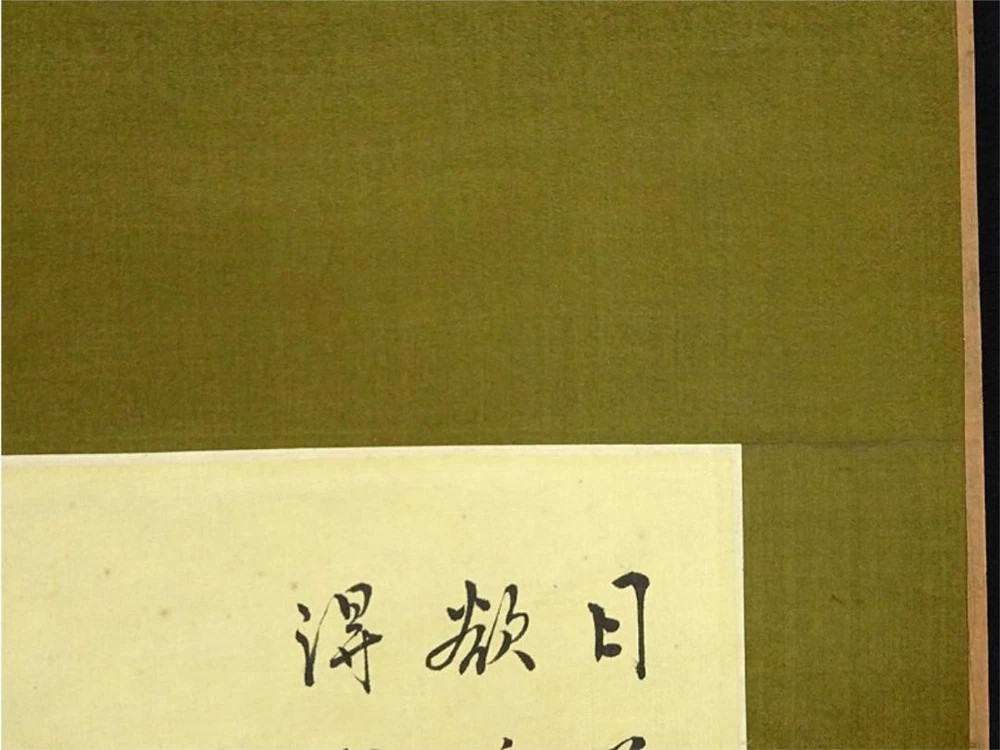 日
欲
得